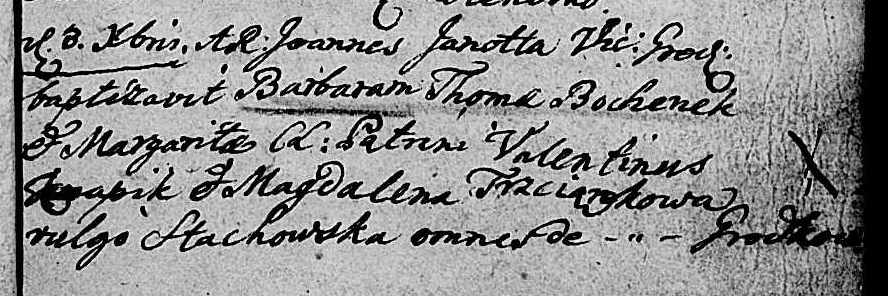 d. 3. Xbris. A.R: Joannes Janotta Vic: Grod:
baptizavit Barbaram Thomæ Bochenek
& Margaritæ CL: Patrini Valentinus
& Magdalena Trzciąnkowa
vulgo Stachowska omnes de - " - Grodkow